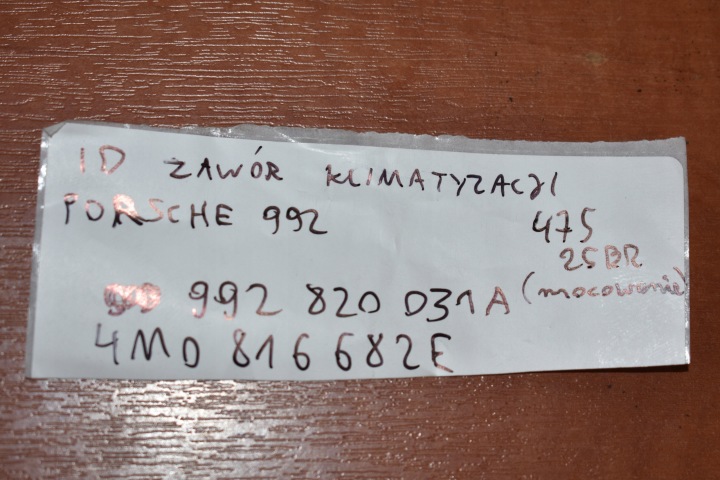 ID ZAWÓR KLIMATYZACJI
PORSCHE 992 475
25BR
992 820 031A (mocowanie)
4M0 816 682E